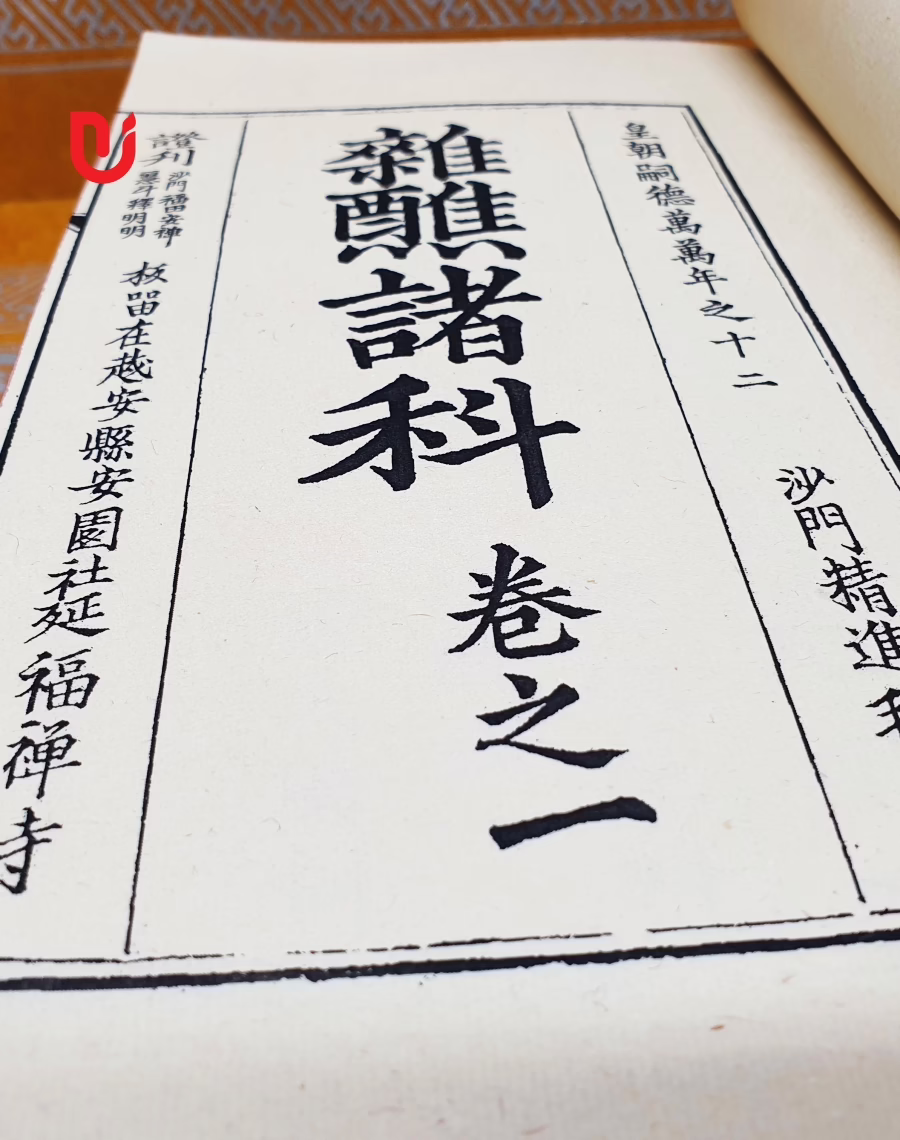 皇朝嗣德萬萬年之十二
沙門精進
雜醮諸科
卷之一
證刋
沙門福田安禪
釋明明
板留在越安縣安園社延福禅寺